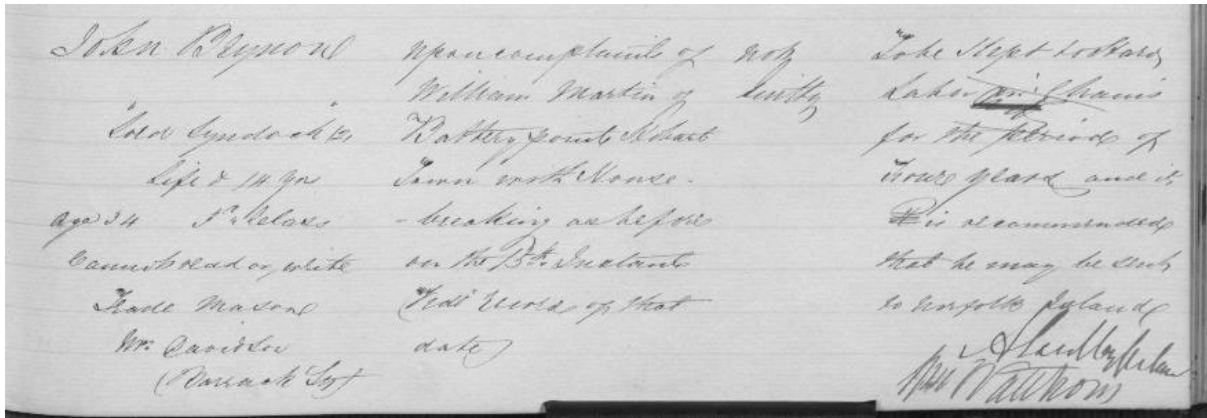 John Brynone
"Lord Lyndoch"
Life & 14 yrs
age 34 3rd Class
Cannot read or write
Trade Mason
Wm Davidson
(Barrack
upon complaint of
William Martin of
Battery point Hobart
Town with House-
-breaking as before
on the 13th Instant
(Vide Record of that
date)
not
Guilty
To be Kept to Hard
Labor in Chains
for the period of
Four years and it
is recommended
that he may be sent
to Norfolk Island